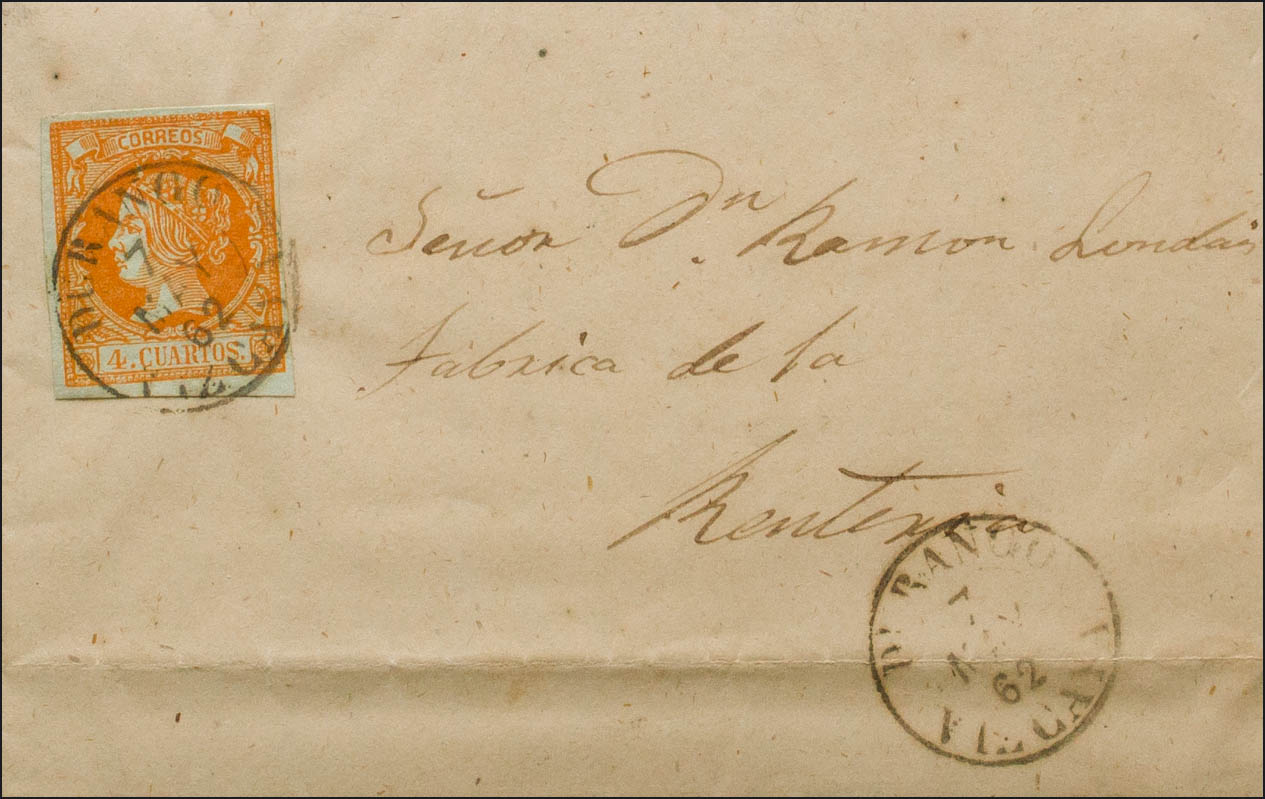 CORREOS
DURANGO
7
62
4. CUARTOS.
Señor Dn. Ramon Londaiz
Fabrica de la
Renteria
DURANGO
62
VIZCAYA